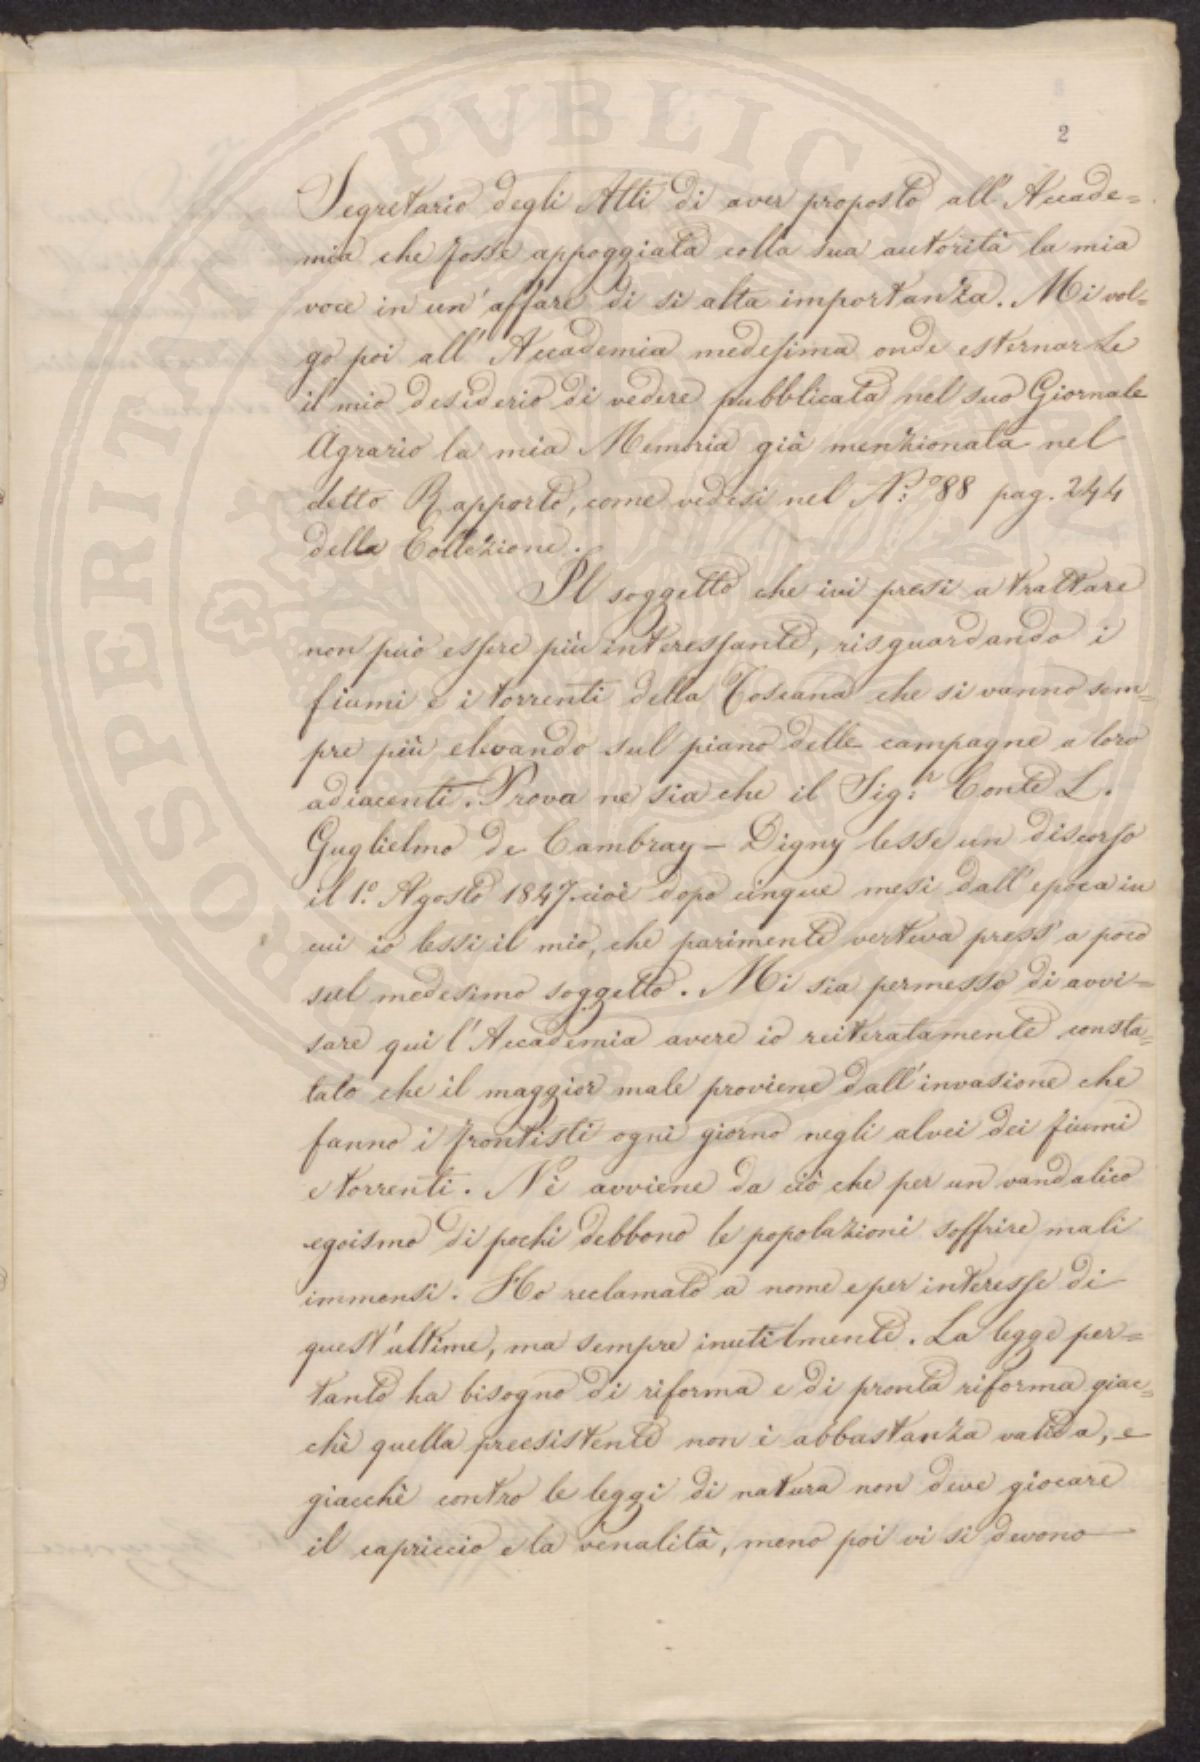 PROSPERITATI PVBLICAE
2
Segretario degli Atti di aver proposto all'Accade=
mia che fosse appoggiata colla sua autorità la mia
voce in un'affare di sì alta importanza. Mi vol=
go poi all'Accademia medesima onde esternarle
il mio desiderio di vedere pubblicata nel suo Giornale
Agrario la mia Memoria già menzionata nel
detto Rapporto, come vedesi nel N:º 88 pag. 244
della Collezione.
Il soggetto che ivi presi a trattare
non può essere più interessante, risguardando i
fiumi e i torrenti della Toscana che si vanno sem=
pre più elevando sul piano delle campagne a loro
adiacenti. Prova ne sia che il Sig:r Conte L.
Guglielmo de Cambray-Digny lesse un discorso
il 1º. Agosto 1847. cioè dopo cinque mesi dall'epoca in
cui io lessi il mio, che parimente verteva press'a poco
sul medesimo soggetto. Mi sia permesso di avvi=
sare qui l'Accademia avere io reiteratamente consta=
tato che il maggior male proviene dall'invasione che
fanno i frontisti ogni giorno negli alvei dei fiumi
e torrenti. Ne avviene da ciò che per un vandalico
egoismo di pochi debbono le popolazioni soffrire mali
immensi. Ho reclamato a nome e per interesse di
quest'ultime, ma sempre inutilmente. La legge per=
tanto ha bisogno di riforma e di pronta riforma giac=
chè quella preesistente non è abbastanza valida, e
giacchè contro le leggi di natura non deve giocare
il capriccio e la venalità, meno poi vi si devono